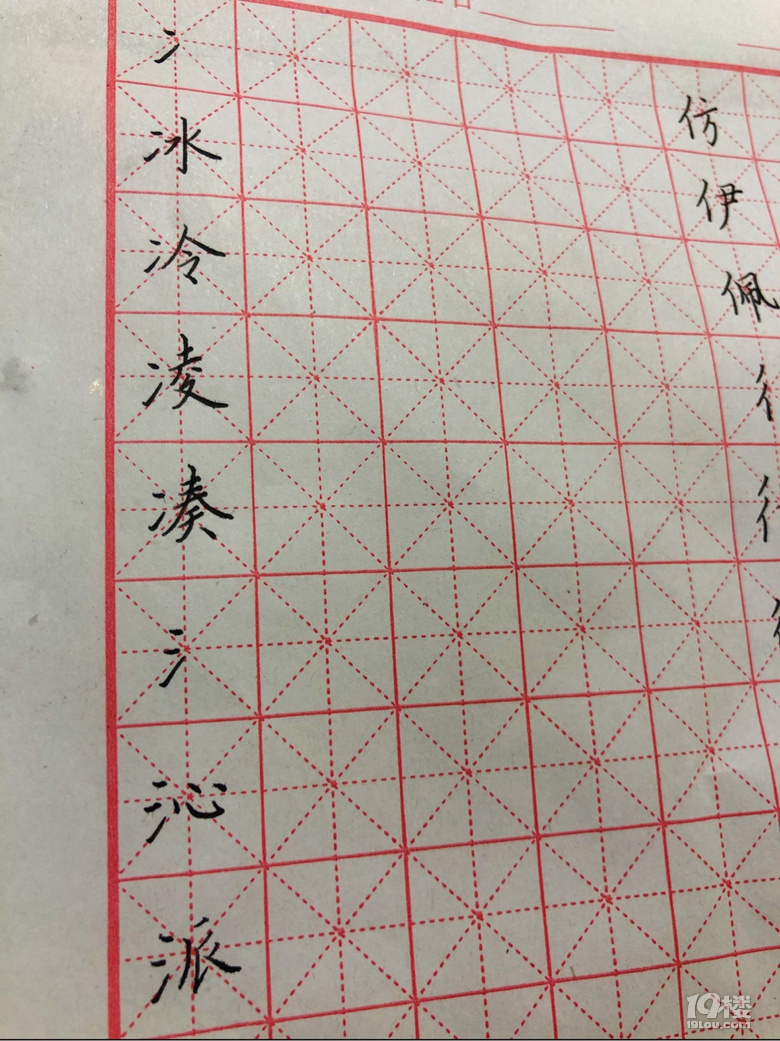 冫
冰
冷
凌
凑
氵
沁
派
仿
伊
佩
彳
19楼
19lou.com